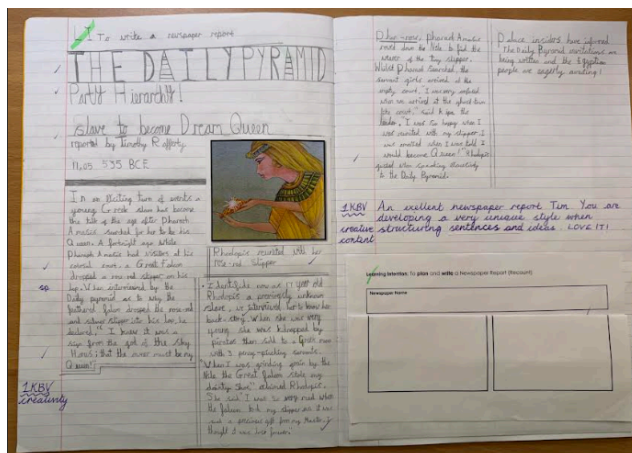 LI To write a newspaper report
THE DAILY PYRAMID
Party Hierarchy!
slave to become Dream Queen
reported by Timothy Rafferty
n.05 535 BCE
In an exciting turn of events a
young Greek slave has become
the talk of the age after Pharaoh
Amasis searched for her to be his
Queen. A fortnight ago while
Pharaoh Amasis had visitors at his
court, a Great Falcon
dropped a rose-red slipper on his
lap. When interviewed by the
Daily pyramid as to why the
feathered falcon dropped the rose-red
slipper into his lap, he
declared, "I knew it was a
sign from the god of the sky
Horus; that the owner must be my
Queen!"
1KBV
creativity
Rhodopis reunited with her
rose-red slipper
Identified now as 17 year old
Rhodopis a previously unknown
slave, is interviewed to know her
back-story. When she was very
young she was kidnapped by
pirates then sold to a Greek man
with 3 servants.
"When I was grinding grain by the
Nile the Great falcon stole my
dainty shoe," Rhodopis.
She said "I was so very mad when
the falcon took my slipper as it was
such a precious gift from my Master. I
thought it was lost forever."
Pharaoh Amasis
down the Nile to find the
owner of the tiny slipper.
Whilst Pharaoh searched, the
servant girls arrived at the
empty court. "I was very confused
when we arrived at the ghost-town
court," said the
. "I was so happy when I
was reunited with my slipper. I
was amazed when I was told I
would become Queen!" Rhodopis
when speaking
to the Daily Pyramid.
Palace insiders have informed
The Daily Pyramid invitations are
being written and the Egyptian
people are eagerly awaiting!
1KBV An exellent newspaper report Tim. You are
developing a very unique style when
creative structuring sentences and ideas. LOVE IT!
content
Learning Intention: To plan and write a Newspaper Report (Recount)
Newspaper Name